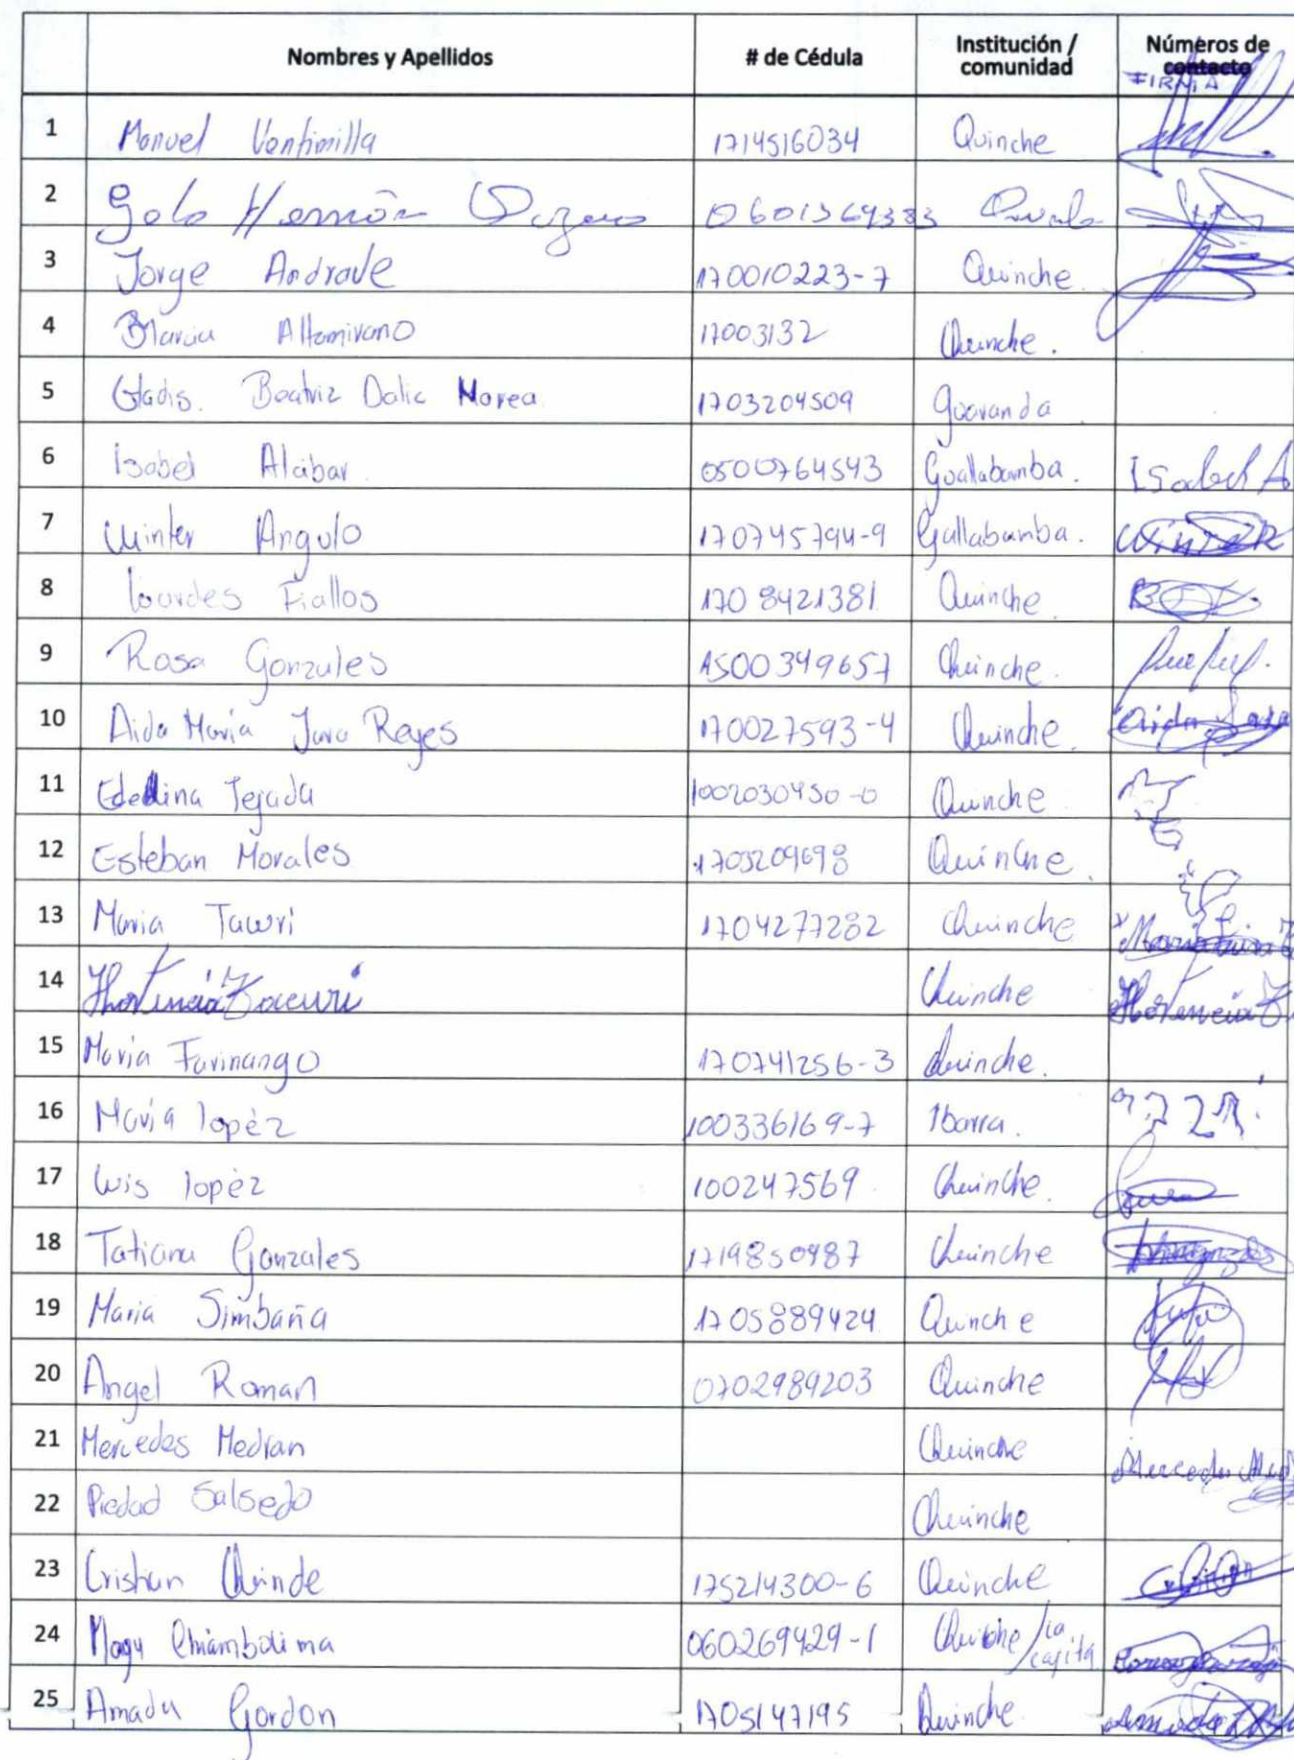 Nombres y Apellidos # de Cédula Institución / comunidad Números de contacto
FIRMA
1 Manuel Ventimilla 1714516034 Quinche
2 Galo Hernán 0601369383
3 Jorge Andrade 170010223-7 Quinche
4 Maria Altamirano 17003132 Quinche.
5 Gladis. Beatriz Dalic Morea 1703204509
6 Isabel Alabar 0500764543 Guallabamba. Isabel A
7 Winter Angulo 170745794-9 Gallabamba. WINTER
8 lourdes Fiallos 1708421381 Quinche
9 Rosa Gonzales 1500349657 Quinche.
10 Aida María Jara Reyes 170027593-4 Quinche. Aida Jara
11 Tejada 1002030450-0 Quinche
12 Esteban Morales 1705209698 Quinche.
13 Maria Tawri 1704277282 Quinche
14 Hortencia Quinche Hortencia
15 Maria Farinango 170741256-3 Quinche.
16 Maria lopèz 100336169-7 Ibarra.
17 luis lopèz 100247569 Quinche.
18 Tatiana Gonzales 1719850987 Quinche
19 Maria Simbaña 1705889424 Quinche
20 Angel Roman 0702989203 Quinche
21 Mercedes Medran Quinche
22 Piedad Salsedo Quinche
23 Cristian Quinde 175214300-6 Quinche
24 060269429-1 Quinche/la
25 Amada Gordon 1705147195 Quinche